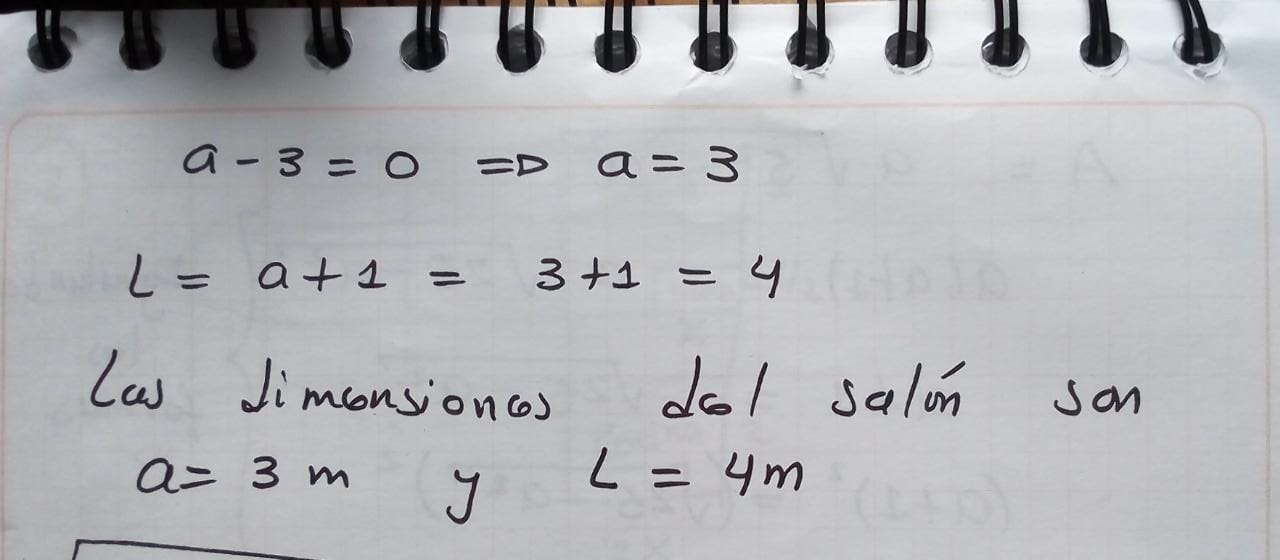 a - 3 = 0 ⇒ a = 3
L = a + 1 = 3 + 1 = 4
Las dimensiones del salón son
a = 3 m y L = 4m